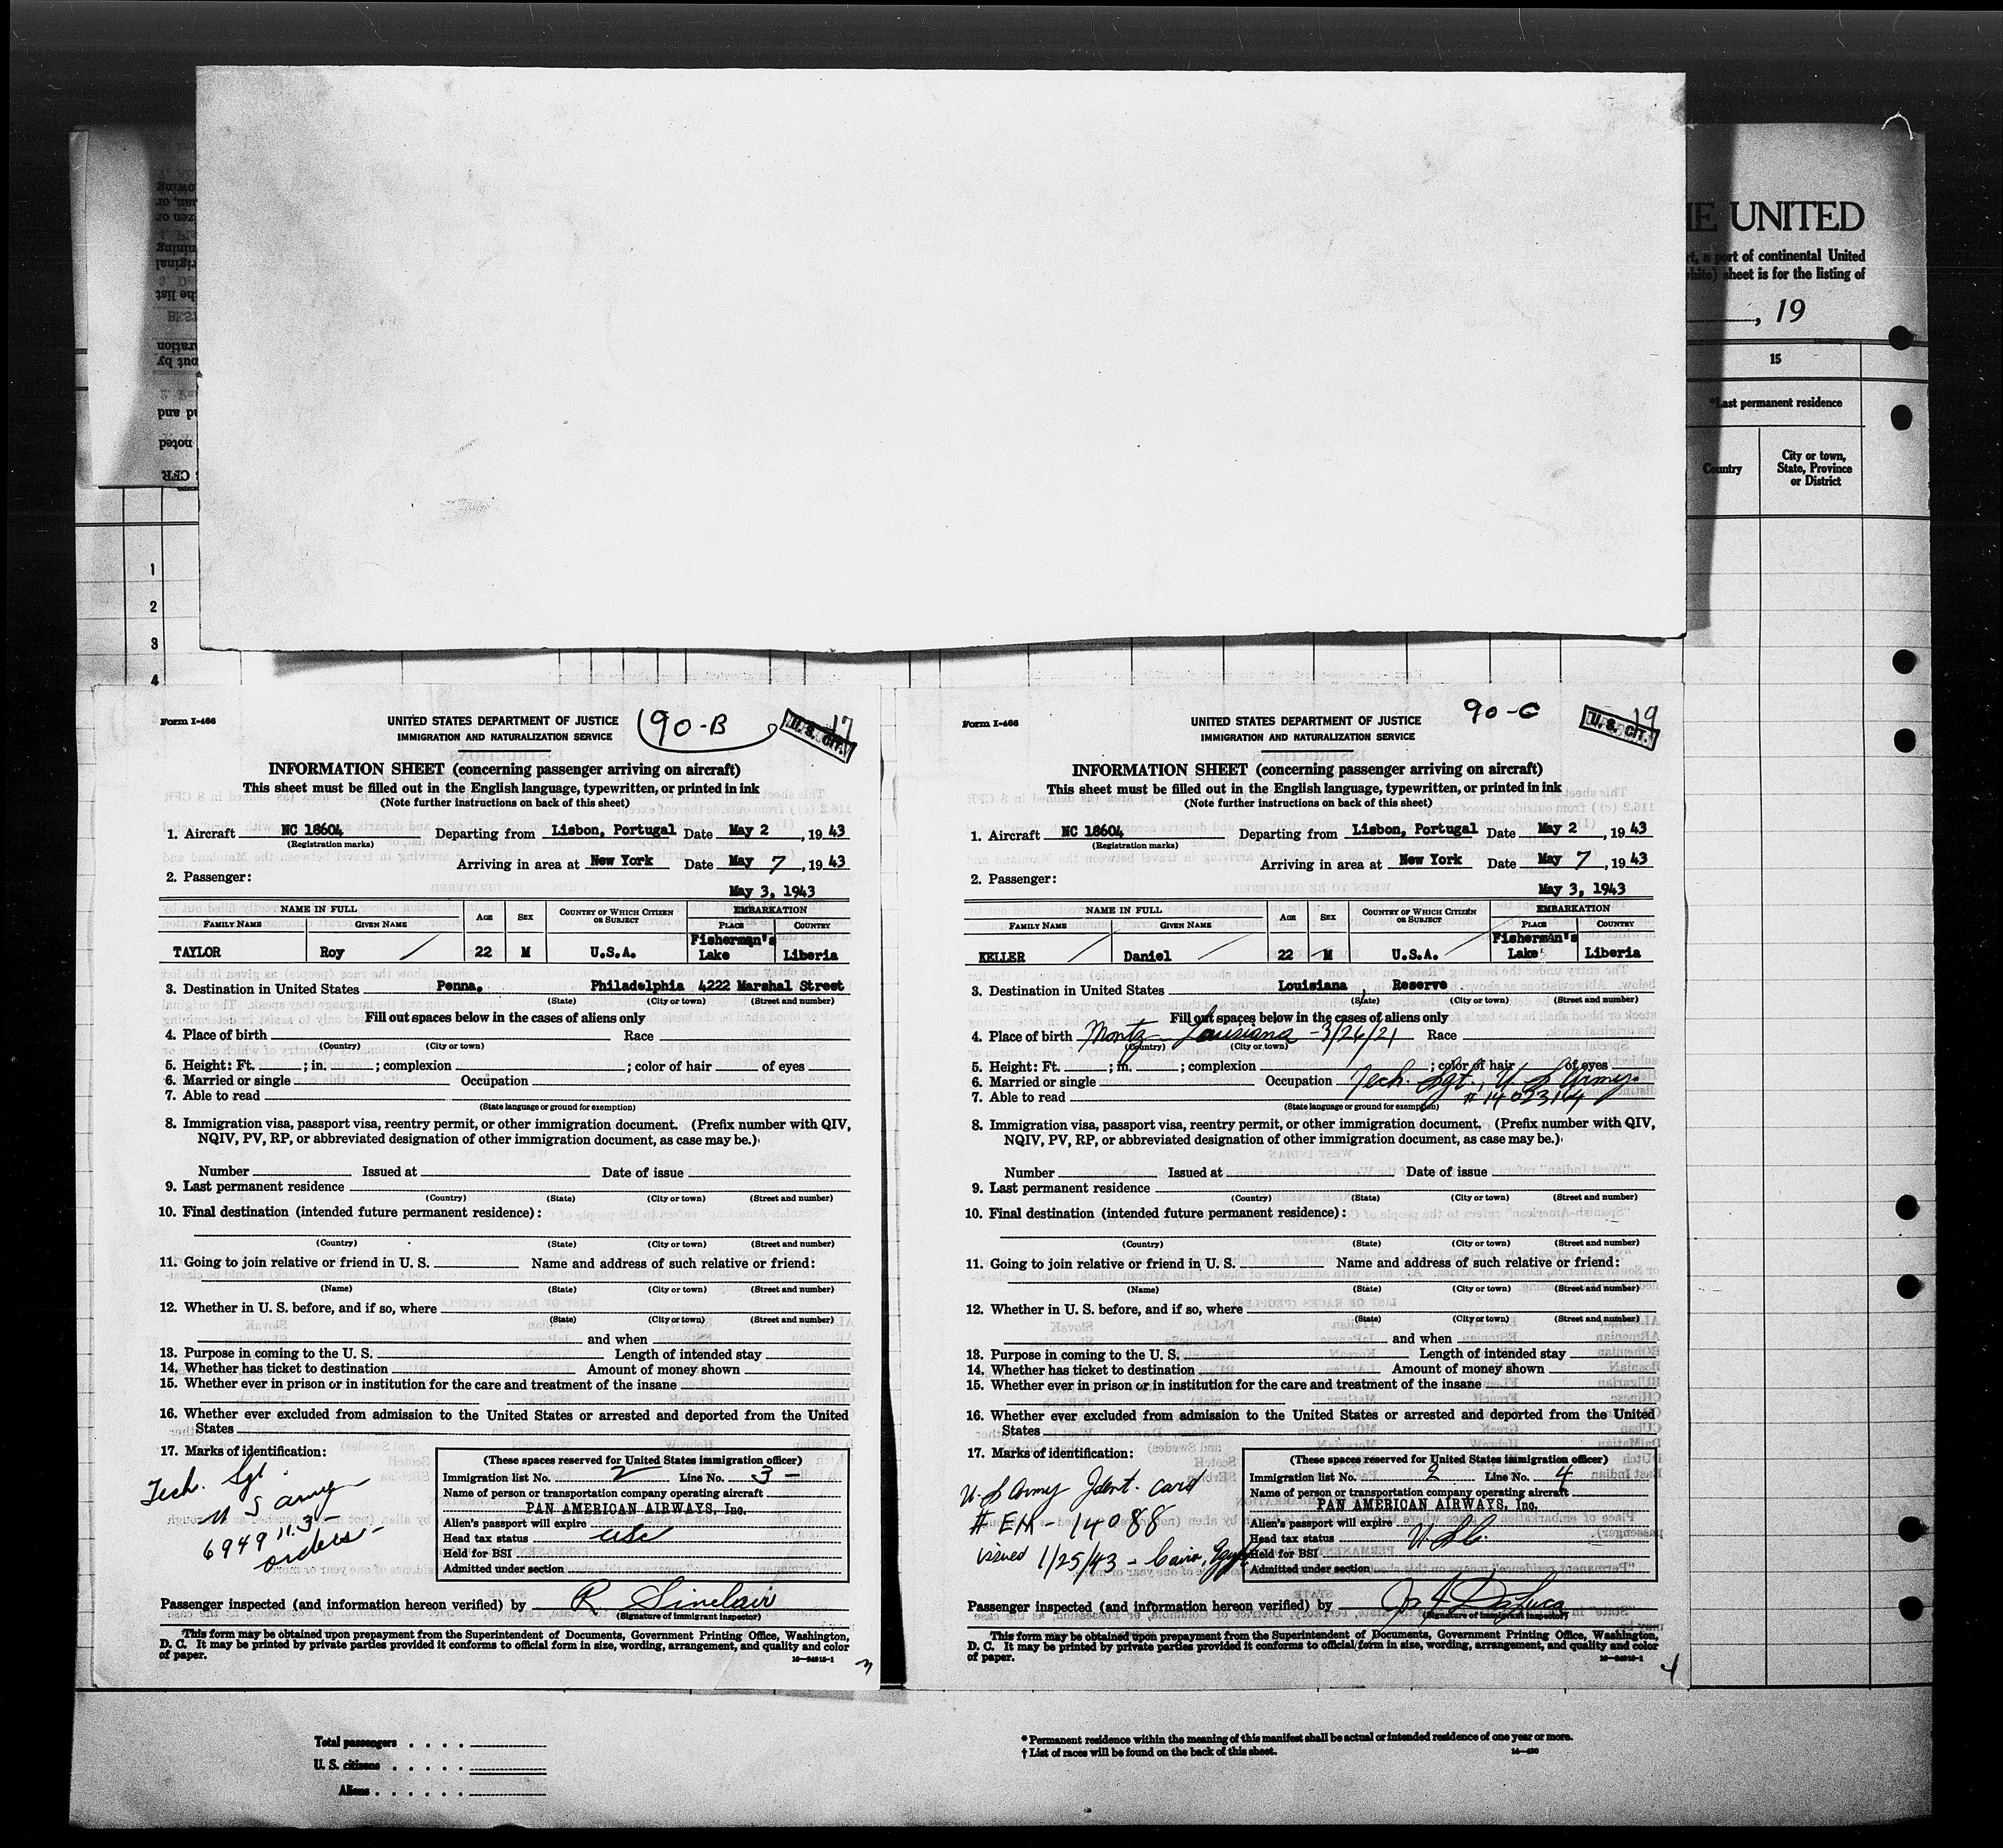 HE UNITED
rt, a port of continental United
white) sheet is for the listing of
, 19
15
*Last permanent residence
Country
City or town,
State, Province
or District
1
2
3
4
Form I-466
UNITED STATES DEPARTMENT OF JUSTICE
IMMIGRATION AND NATURALIZATION SERVICE
90-B
17
U. S. CIT.
INFORMATION SHEET (concerning passenger arriving on aircraft)
This sheet must be filled out in the English language, typewritten, or printed in ink
(Note further instructions on back of this sheet)
1. Aircraft NC 18604 Departing from Lisbon, Portugal Date May 2, 1943
(Registration marks)
Arriving in area at New York Date May 7, 1943
2. Passenger:
May 3, 1943
NAME IN FULL AGE SEX COUNTRY OF WHICH CITIZEN OR SUBJECT EMBARKATION
FAMILY NAME GIVEN NAME PLACE COUNTRY
TAYLOR Roy 22 M U.S.A. Fisherman's Lake Liberia
3. Destination in United States Penna. Philadelphia 4222 Marshal Street
(State) (City or town) (Street and number)
Fill out spaces below in the cases of aliens only
4. Place of birth Race
(Country) (City or town)
5. Height: Ft. ; in. ; complexion ; color of hair of eyes
6. Married or single Occupation
7. Able to read
(State language or ground for exemption)
8. Immigration visa, passport visa, reentry permit, or other immigration document. (Prefix number with QIV,
NQIV, PV, RP, or abbreviated designation of other immigration document, as case may be.)
Number Issued at Date of issue
9. Last permanent residence
(Country) (State) (City or town) (Street and number)
10. Final destination (intended future permanent residence):
(Country) (State) (City or town) (Street and number)
11. Going to join relative or friend in U. S. Name and address of such relative or friend:
(Name) (State) (City or town) (Street and number)
12. Whether in U. S. before, and if so, where
(State) (City or town) (Street and number)
and when
13. Purpose in coming to the U. S. Length of intended stay
14. Whether has ticket to destination Amount of money shown
15. Whether ever in prison or in institution for the care and treatment of the insane
16. Whether ever excluded from admission to the United States or arrested and deported from the United
States
17. Marks of identification:
Tech. Sgt.
U S Army
6949113-
orders-
(These spaces reserved for United States immigration officer)
Immigration list No. 2 Line No. 3-
Name of person or transportation company operating aircraft
PAN AMERICAN AIRWAYS, Inc.
Alien's passport will expire
Head tax status USC
Held for BSI
Admitted under section
Passenger inspected (and information hereon verified) by R Sinclair
(Signature of immigrant inspector)
This form may be obtained upon prepayment from the Superintendent of Documents, Government Printing Office, Washington,
D. C. It may be printed by private parties provided it conforms to official form in size, wording, arrangement, and quality and color
of paper.
16—24915-1
3
Form I-466
UNITED STATES DEPARTMENT OF JUSTICE
IMMIGRATION AND NATURALIZATION SERVICE
90-C
19
U. S. CIT.
INFORMATION SHEET (concerning passenger arriving on aircraft)
This sheet must be filled out in the English language, typewritten, or printed in ink
(Note further instructions on back of this sheet)
1. Aircraft NC 18604 Departing from Lisbon, Portugal Date May 2, 1943
(Registration marks)
Arriving in area at New York Date May 7, 1943
2. Passenger:
May 3, 1943
NAME IN FULL AGE SEX COUNTRY OF WHICH CITIZEN OR SUBJECT EMBARKATION
FAMILY NAME GIVEN NAME PLACE COUNTRY
KELLER Daniel 22 M U.S.A. Fisherman's Lake Liberia
3. Destination in United States Louisiana, Reserve
(State) (City or town) (Street and number)
Fill out spaces below in the cases of aliens only
4. Place of birth Montz Louisiana - 3/26/21 Race
(Country) (City or town)
5. Height: Ft. ; in. ; complexion ; color of hair of eyes
6. Married or single Occupation Tech. Sgt., U S Army.
7. Able to read # 14023164
(State language or ground for exemption)
8. Immigration visa, passport visa, reentry permit, or other immigration document. (Prefix number with QIV,
NQIV, PV, RP, or abbreviated designation of other immigration document, as case may be.)
Number Issued at Date of issue
9. Last permanent residence
(Country) (State) (City or town) (Street and number)
10. Final destination (intended future permanent residence):
(Country) (State) (City or town) (Street and number)
11. Going to join relative or friend in U. S. Name and address of such relative or friend:
(Name) (State) (City or town) (Street and number)
12. Whether in U. S. before, and if so, where
(State) (City or town) (Street and number)
and when
13. Purpose in coming to the U. S. Length of intended stay
14. Whether has ticket to destination Amount of money shown
15. Whether ever in prison or in institution for the care and treatment of the insane
16. Whether ever excluded from admission to the United States or arrested and deported from the United
States
17. Marks of identification:
U.S Army Ident. card
# EM-14088
issued 1/25/43 - Cairo, Egypt
(These spaces reserved for United States immigration officer)
Immigration list No. 2 Line No. 4
Name of person or transportation company operating aircraft
PAN AMERICAN AIRWAYS, Inc.
Alien's passport will expire
Head tax status USC.
Held for BSI
Admitted under section
Passenger inspected (and information hereon verified) by DaLuca
(Signature of immigrant inspector)
This form may be obtained upon prepayment from the Superintendent of Documents, Government Printing Office, Washington,
D. C. It may be printed by private parties provided it conforms to official form in size, wording, arrangement, and quality and color
of paper.
16—24915-1
4
Total passengers
U. S. citizens
Aliens
* Permanent residence within the meaning of this manifest shall be actual or intended residence of one year or more.
† List of races will be found on the back of this sheet.